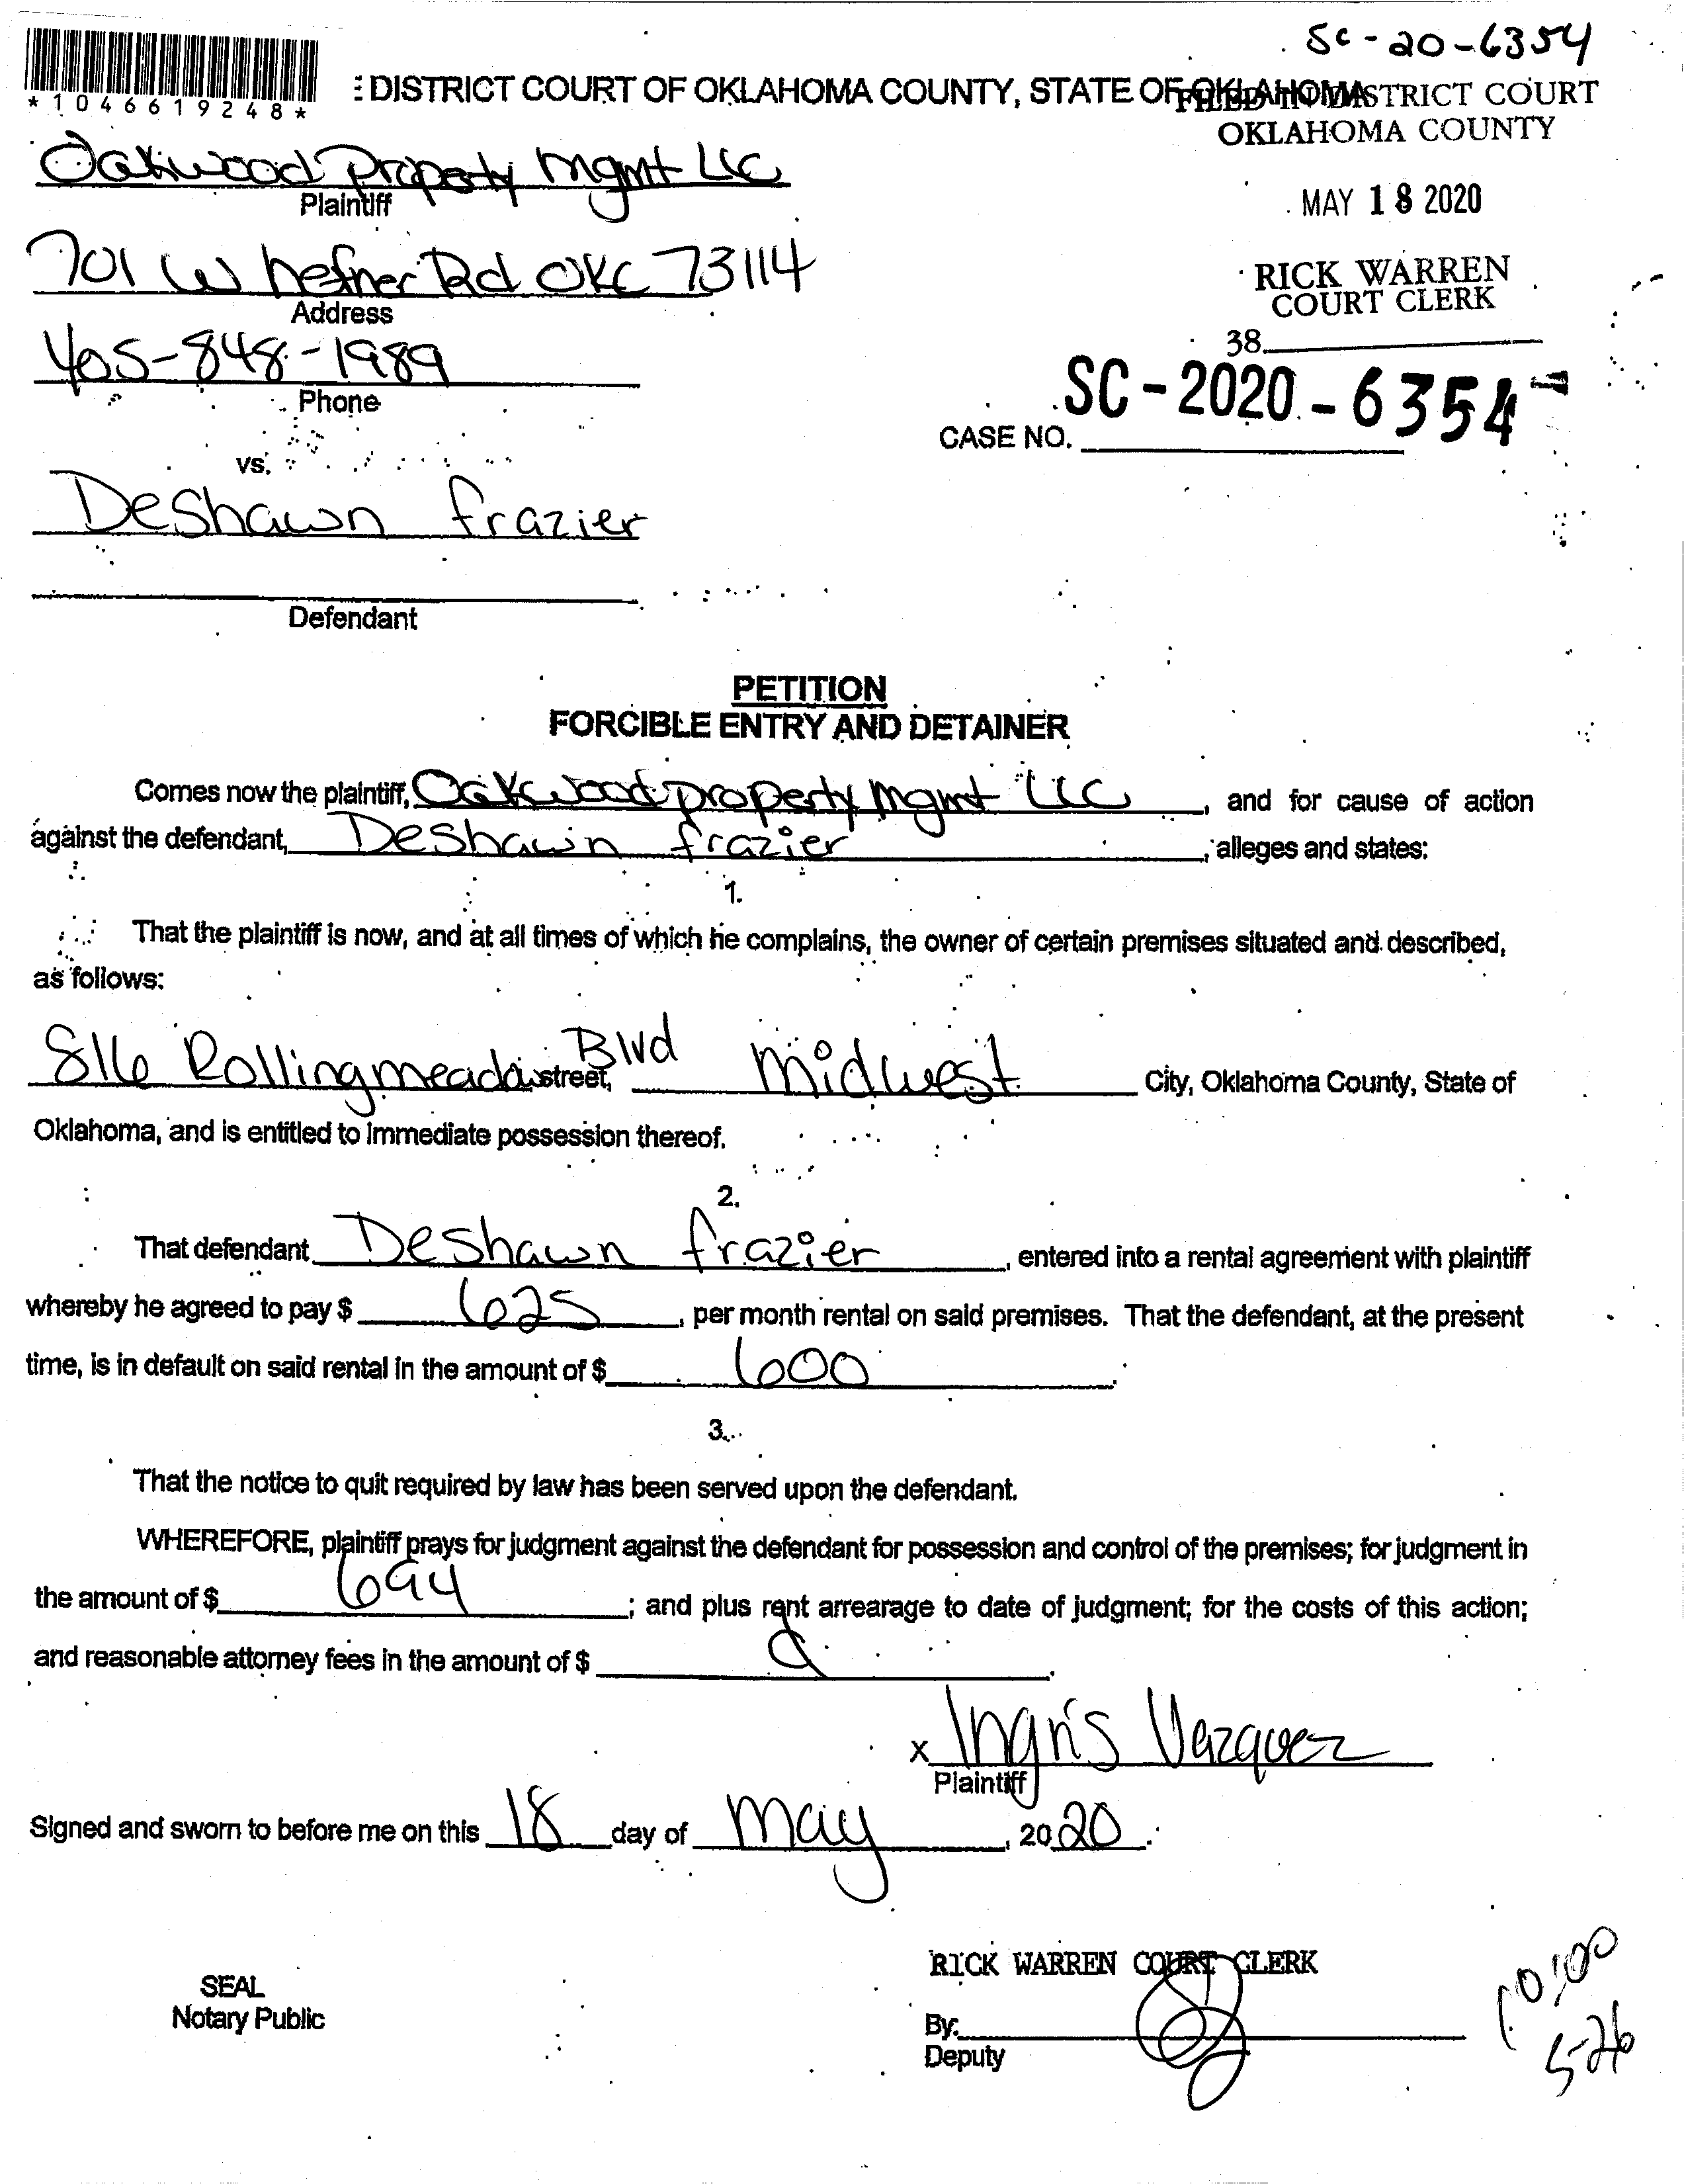 SC-20-6354
*1046619248*
: DISTRICT COURT OF OKLAHOMA COUNTY, STATE OF OKLAHOMA
FILED IN DISTRICT COURT
OKLAHOMA COUNTY
Oakwood Property Mgmt LLC
Plaintiff
MAY 18 2020
701 W hefner Rd OKC 73114
Address
RICK WARREN
COURT CLERK
405-848-1989
Phone
38
SC-2020-6354
CASE NO.
vs.
Deshawn frazier
Defendant
PETITION
FORCIBLE ENTRY AND DETAINER
Comes now the plaintiff, Oakwood property Mgmt LLC, and for cause of action
against the defendant, Deshawn frazier, alleges and states:
1.
That the plaintiff is now, and at all times of which he complains, the owner of certain premises situated and described,
as follows:
816 Rollingmeadow street, Blvd Midwest City, Oklahoma County, State of
Oklahoma, and is entitled to immediate possession thereof.
2.
That defendant Deshawn frazier, entered into a rental agreement with plaintiff
whereby he agreed to pay $ 625, per month rental on said premises. That the defendant, at the present
time, is in default on said rental in the amount of $ 600.
3.
That the notice to quit required by law has been served upon the defendant.
WHEREFORE, plaintiff prays for judgment against the defendant for possession and control of the premises; for judgment in
the amount of $ 694; and plus rent arrearage to date of judgment; for the costs of this action;
and reasonable attorney fees in the amount of $
x Ingris Vazquez
Plaintiff
Signed and sworn to before me on this 18 day of May, 2020.
RICK WARREN COURT CLERK
SEAL
Notary Public
By:
Deputy
10:00
5-26